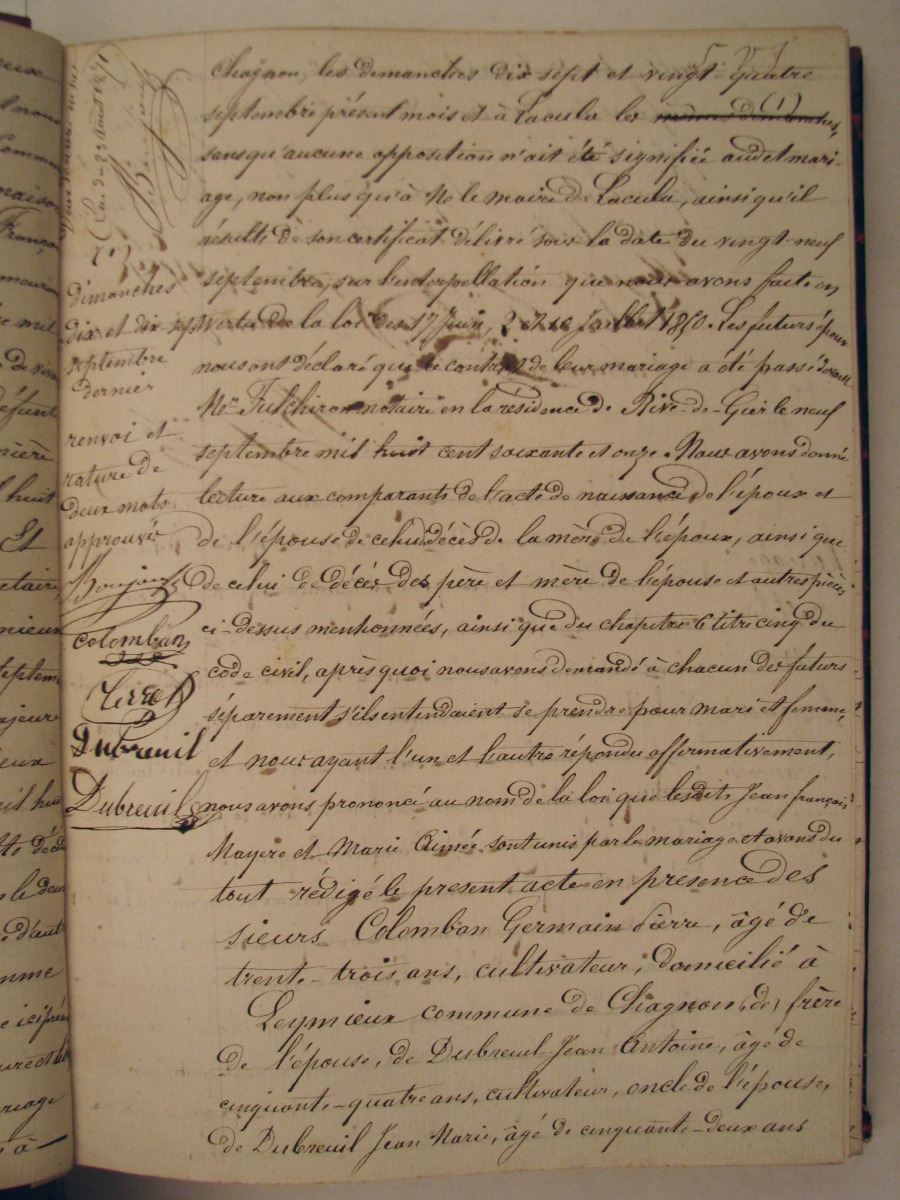 Chagnon, les dimanches dix sept et vingt-quatre
septembre présent mois et à Lacula les mêmes dimanches, (1)
sans qu'aucune opposition n'ait été signifiée audit mari-
age, non plus qu'à Mr le maire de Lacula, ainsi qu'il
résulte de son certificat délivré sous la date du vingt-neuf
septembre, sur l'interpellation que nous avons faite en
vertu de la loi des 17 Juin, 2 et 10 Juillet 1850. Les futurs époux
nous ont déclaré que le contrat de leur mariage a été passé devant
Me Fulchiron notaire en la résidence de Rive-de-Gier le neuf
septembre mil huit cent soixante et onze. Nous avons donné
lecture aux comparants de l'acte de naissance de l'époux et
de l'épouse de celui décès de la mère de l'époux, ainsi que
de celui de décès des père et mère de l'épouse et autres pièces
ci-dessus mentionnées, ainsi que du chapitre 6 titre cinq du
code civil, après quoi nous avons demandé à chacun des futurs
séparement s'ils entendaient se prendre pour mari et femme,
et nous ayant l'un et l'autre répondu affirmativement,
nous avons prononcé au nom de la loi que lesdits Jean françois
Mayere et Marie Aimée sont unis par le mariage et avons du
tout rédigé le present acte en presence des
sieurs Colomban Germain Pierre, âgé de
trente-trois ans, cultivateur, domicilié à
Leymieux commune de Chagnon, frère
de l'épouse, de Dubreuil Jean Antoine, âgé de
cinquante-quatre ans, cultivateur, oncle de l'épouse,
de Dubreuil Jean Marie, âgé de cinquante-deux ans
Loi du 23 Août 1871
(1)
dimanches
dix et dix-sept
septembre
dernier
renvoi et
rature de
deux mots
approuvés
Colomban
Dubreuil
Dubreuil